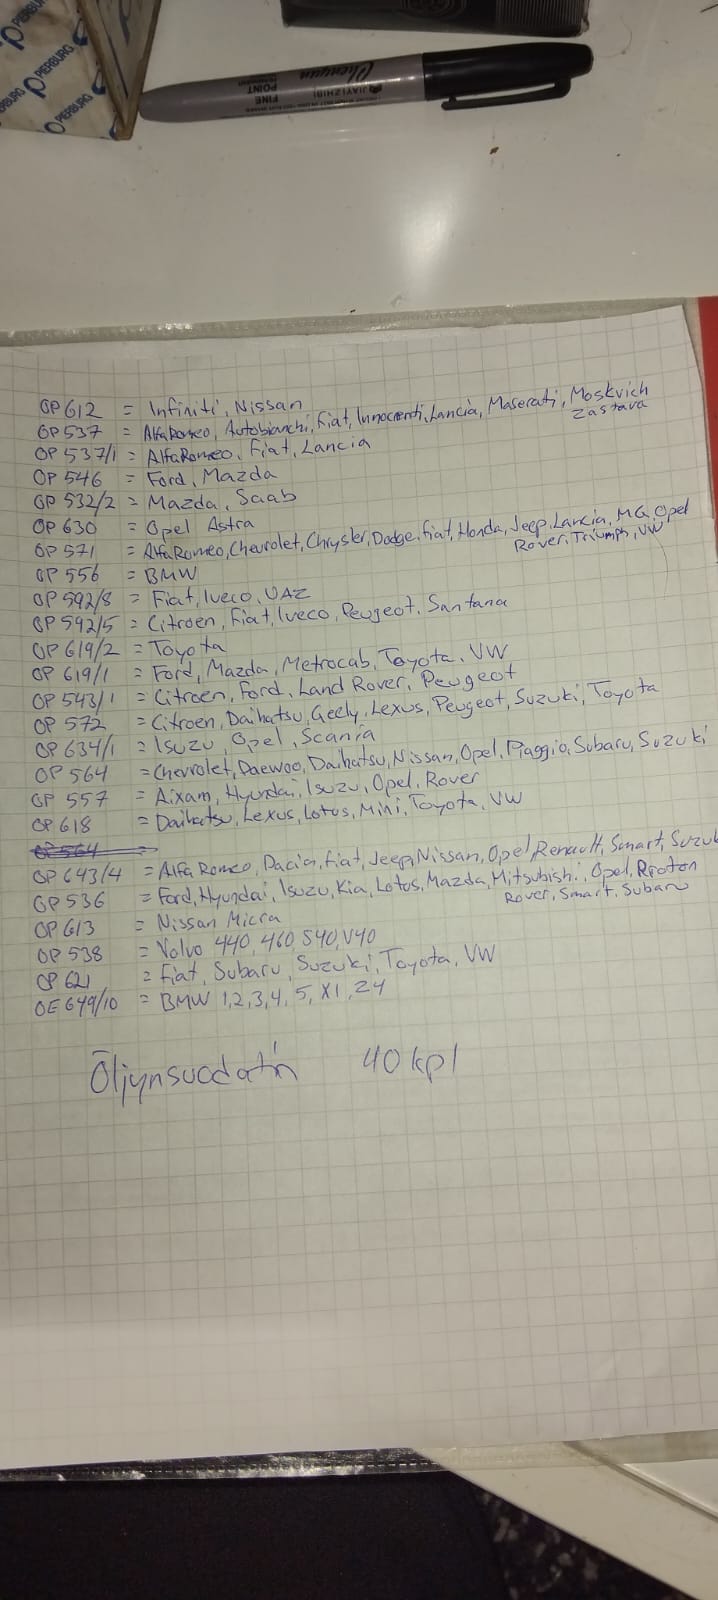 PIERBURG
PIERBURG
PIERBURG
Chenyun
JIAYIZHISI
FINE
POINT
OP 612 = Infiniti, Nissan
OP 537 = Alfa Romeo, Autobianchi, Fiat, Innocenti, Lancia, Maserati, Moskvich
Zastava
OP 537/1 = Alfa Romeo, Fiat, Lancia
OP 546 = Ford, Mazda
OP 532/2 = Mazda, Saab
OP 630 = Opel Astra
OP 571 = Alfa Romeo, Chevrolet, Chrysler, Dodge, Fiat, Honda, Jeep, Lancia, MG, Opel
Rover, Triumph, VW
OP 556 = BMW
OP 592/8 = Fiat, Iveco, UAZ
OP 592/5 = Citroen, Fiat, Iveco, Peugeot, Santana
OP 619/2 = Toyota
OP 619/1 = Ford, Mazda, Metrocab, Toyota, VW
OP 543/1 = Citroen, Ford, Land Rover, Peugeot
OP 572 = Citroen, Daihatsu, Geely, Lexus, Peugeot, Suzuki, Toyota
OP 634/1 = Isuzu, Opel, Scania
OP 564 = Chevrolet, Daewoo, Daihatsu, Nissan, Opel, Piaggio, Subaru, Suzuki
OP 557 = Aixam, Hyundai, Isuzu, Opel, Rover
OP 618 = Daihatsu, Lexus, Lotus, Mini, Toyota, VW
OP 564 =
OP 643/4 = Alfa Romeo, Dacia, Fiat, Jeep, Nissan, Opel, Renault, Smart, Suzuk
OP 536 = Ford, Hyundai, Isuzu, Kia, Lotus, Mazda, Mitsubishi, Opel, Proton
Rover, Smart, Subaru
OP 613 = Nissan Micra
OP 538 = Volvo 440, 460, S40, V40
OP 621 = Fiat, Subaru, Suzuki, Toyota, VW
OE 649/10 = BMW 1,2,3,4, 5, X1, Z4
Öljynsuodatin 40 kpl